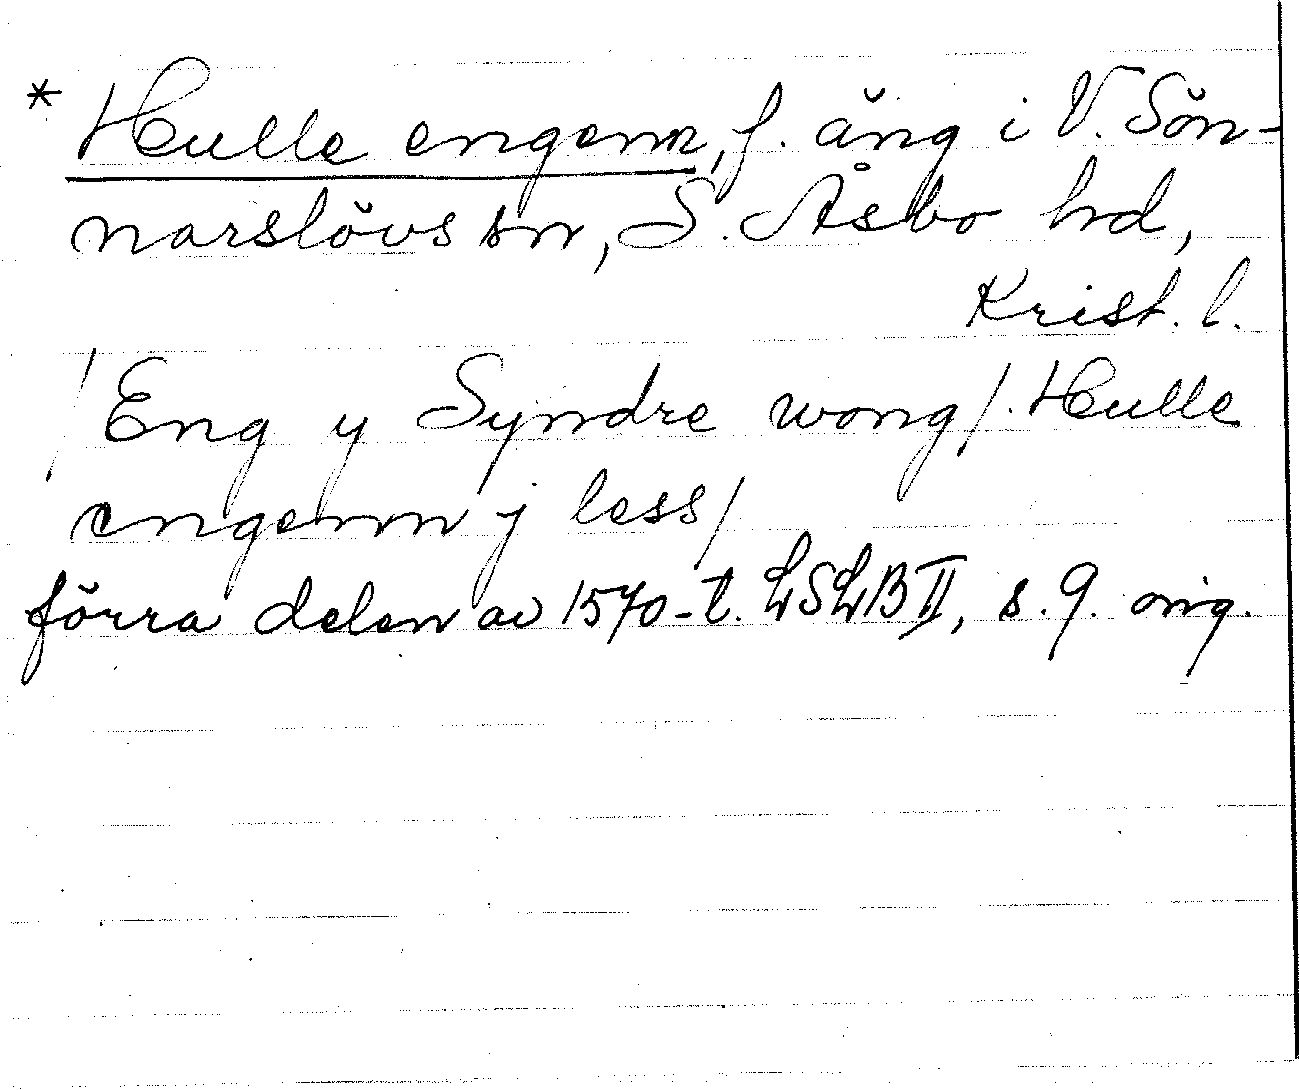 * Hulle engenn, f. äng i V. Sön-
narslövs sn, S. Åsbo hd,
Krist. l.
/Eng y Syndre wong/. Hulle
engenn j less/
förra delen av 1570-t. LSLB II, s. 9. orig.